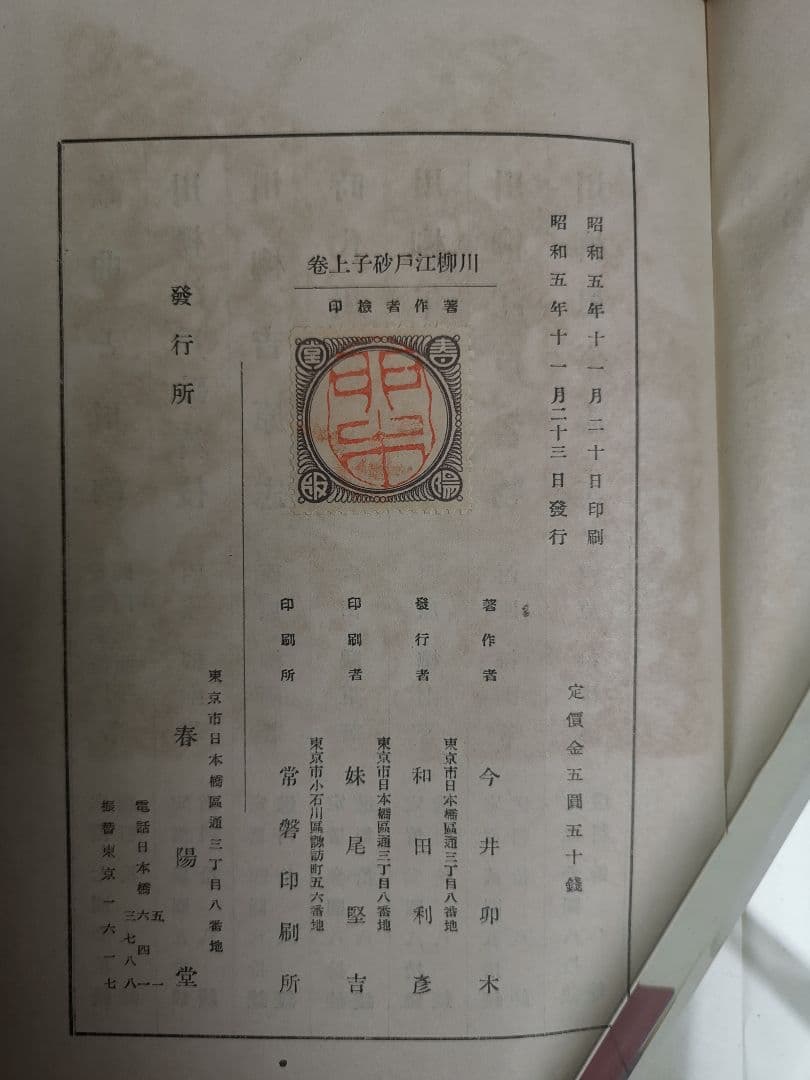 昭和五年十一月二十日印刷
昭和五年十一月二十三日發行
川柳江戶砂子上卷
著作者檢印
春陽堂版
定價金五圓五十錢
著作者 今井卯木
東京市日本橋區通三丁目八番地
發行者 和田利彥
東京市日本橋區通三丁目八番地
印刷者 妹尾堅吉
東京市小石川區諏訪町五六番地
印刷所 常磐印刷所
發行所
東京市日本橋區通三丁目八番地
春陽堂
電話日本橋
五一
六四一
三七八八
振替東京一六一七